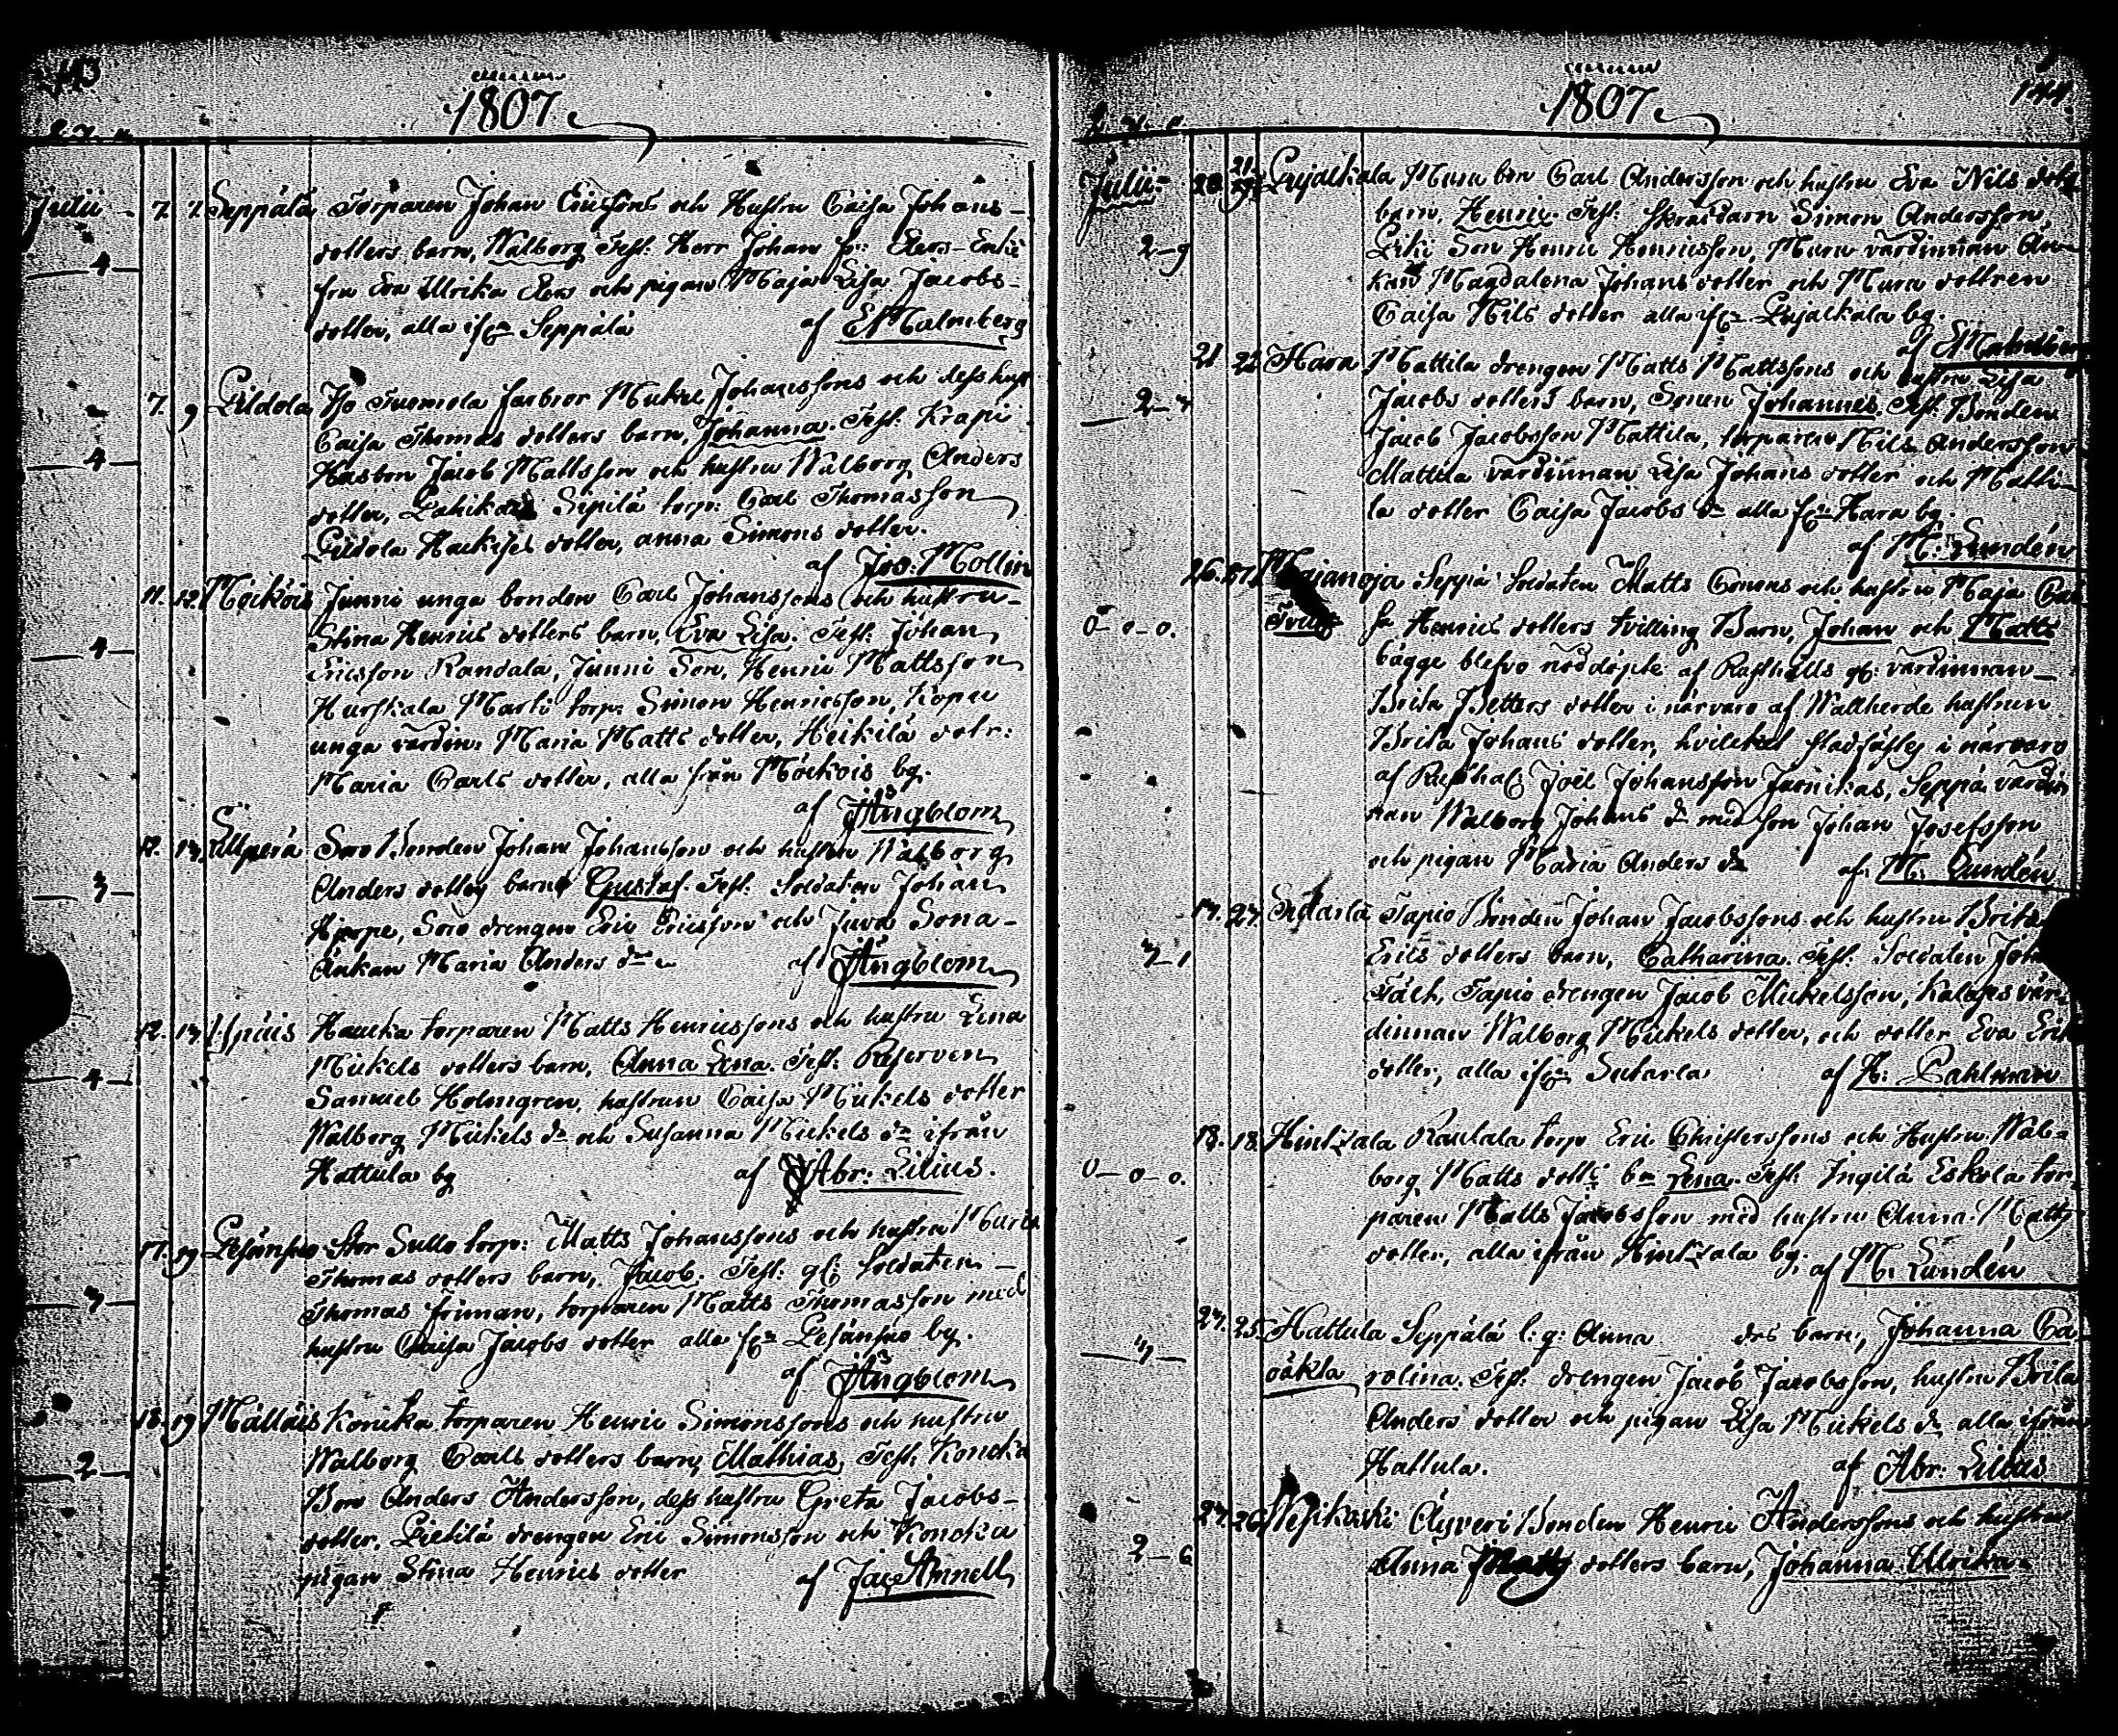 143
annum
1807
Julii
7. 7. Seppälä Torparen Johan Ericssons och Hustru Caisa Johans-
4
dotters barn, Walborg Test: Herr Johan Elers- Enke
fru Eva Ulrika Elers och pigan Maja Lisa Jacobs-
dotter, alla ifrn Seppälä af E Malmberg
7. 9 Lildola Iso Tuomola farbror Mickel Johanssons och dess hust
Caisa Thomas dotters barn, Johanna. Test: Krapi
4
Husbon Jacob Mattsson och hustru Walborg Anders
dotter, Sipilä torp: Carl Thomasson
Lildola dotter, anna Simons dotter.
af Joo: Mollin
11. 12. Mockois Junni unga bonden Carl Johanssons och hustru
Stina Henrics dotters barn, Eva Lisa. Test: Johan
4
Ericsson Randala, Junni Son, Henric Mattsson
Marti torp: Simon Henricsson, Kopu
unga värdin: Maria Matts dotter, Heikilä dotr:
Maria Carls dotter, alla från Mockois by.
af J Ångblom
12. 14. Soro Bonden Johan Johansson och hustru Walborg
Anders dotters barn Gustaf. Test: Soldaten Johan
3
Hjerpe, Soro drengen Eric Ericsson och Juva Sona-
Änkan Maria Anders dr af J Ångblom
12. 14. Haucka torparen Matts Henricssons och hustru Lena
Mickels dotters barn, Anna Lena. Test: Reserven
4
Samuel Holmgren, hustrun Caisa Mickels dotter
Walborg Mickels dr och Susanna Mickels dr ifrån
Hattula by af Abr: Lilius.
17. 19 Lesänsuo Stor Sullo torp: Matts Johanssons och hustru Maria
Thomas dotters barn, Jacob. Test: gl: Soldaten
Thomas Friman, torparen Matts Thomasson med
hustru Caisa Jacobs dotter alla frn Lesänsuo by.
af J Ångblom
18. 19 Mälläis Konika torparen Henric Simonssons och hustru
Walborg Carls dotters barn, Mathias, Test: Koncka
2
Bon Anders Andersson, dess hustru Greta Jacobs-
dotter, Lietilä drengen Eric Simonsson och Koncka
pigan Stina Henrics dotter af Jac Amnell
annum
1807
144
Julii
20. 21. Lujalkala Muru bon Carl Andersson och hustru Eva Nils dotr
barn, Henric. Test: Skräddarn Simon Andersson,
2-9
Liki Son Henric Henricsson, Muru värdinnan Än-
kan Magdalena Johans dotter och Muru dottren
Caisa Nils dotter alla ifrn Lujalkala by.
af E Malmberg
21 22 Hara Mattila drengen Matts Mattssons och hustru Lisa
2-7
Jacobs dotters barn, Sonen Johannes. Test: Bonden
Jacob Jacobsson Mattila, torparen Nils Andersson
Mattila värdinnan Lisa Johans dotter och Matti-
la dotter Caisa Jacobs dr alla frn Hara by.
af M: Lundén
26. 27. Majanoja Seppä Soldaten Matts och hustru Maja Cai
0-0-0. Tvill:
sa Henrics dotters tvilling Barn, Johan och Matts
bägge blefvo nöddöpte af Rusthålls gl: värdinnan
Brita Petters dotter i närvaro af Wallherde hustrun
Brita Johans dotter, hvilket stadfästes i närvaro
af Rusthål: Joël Johansson Jarnikas, Seppä värdin
nan Walborg Johans dr med son Johan Josefsson
och pigan Maria Anders dr af M: Lundén
17. 27. Sutarla Tapio Bonden Johan Jacobssons och hustru Brita
7-1
Erics dotters barn, Catharina. Test: Soldaten Joh
Fälth, Tapio drengen Jacob Mickelsson, vär-
dinnan Walborg Mickels dotter, och dotter Eva Eric
dotter, alla ifrn Sutarla af H: Pahlman
18. 18 Hintzala Rautala torp Eric Christerssons och Hustru Wal-
0-0-0.
borg Matts dottr bn Lena. Test: Ingilä Eskola tor-
paren Matts Jacobsson med hustru Anna Matts
dotter, alla ifrån Hintzala by. af M: Lundén
24. 25. Hattula Seppälä l: q: Anna des barn, Johanna Ca-
oäkta rolina. Test: drengen Jacob Jacobsson, hustru Brita
Anders dotter och pigan Lisa Mickels dr alla ifrån
Hattula. af Abr: Lilius
24. 26. Wesikoski Äyveri Bonden Henric Anderssons och hustru
2-6
Anna Matts dotters barn, Johanna Ulrika